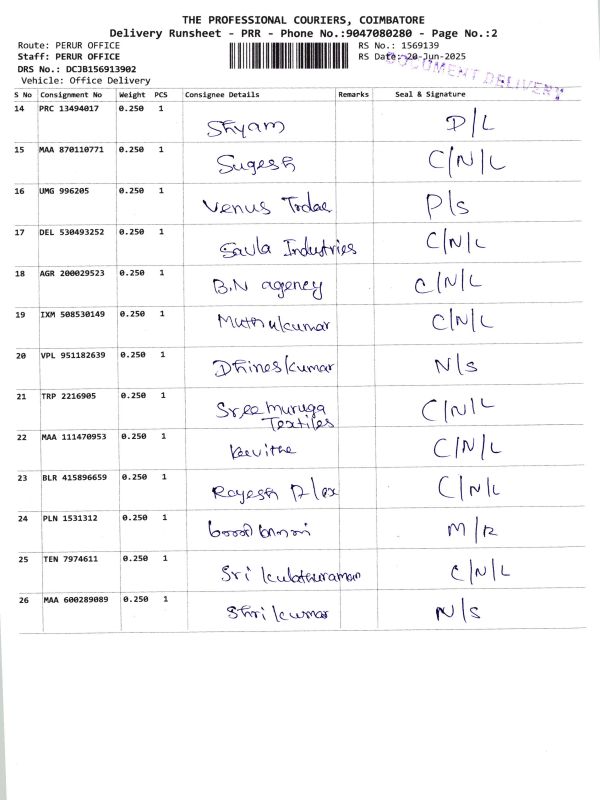 THE PROFESSIONAL COURIERS, COIMBATORE
Delivery Runsheet - PRR - Phone No.:9047080280 - Page No.:2
Route: PERUR OFFICE RS No.: 1569139
Staff: PERUR OFFICE RS Date: 20-Jun-2025
DOCUMENT DELIVERY
DRS No.: DCJB156913902
Vehicle: Office Delivery
S No Consignment No Weight PCS Consignee Details Remarks Seal & Signature
14 PRC 13494017 0.250 1 Shyam D/L
15 MAA 870110771 0.250 1 Sugesh C/N/L
16 UMG 996205 0.250 1 Venus P/S
17 DEL 530493252 0.250 1 Savla Industries C/N/L
18 AGR 200029523 0.250 1 B.N agency C/N/L
19 IXM 508530149 0.250 1 Muthukumar C/N/L
20 VPL 951182639 0.250 1 Dhineskumar N/S
21 TRP 2216905 0.250 1 Sree muruga C/N/L
Textiles
22 MAA 111470953 0.250 1 C/N/L
23 BLR 415896659 0.250 1 Rayesh C/N/L
24 PLN 1531312 0.250 1 M/R
25 TEN 7974611 0.250 1 Sri kulathuraman C/N/L
26 MAA 600289089 0.250 1 Shri kumar N/S